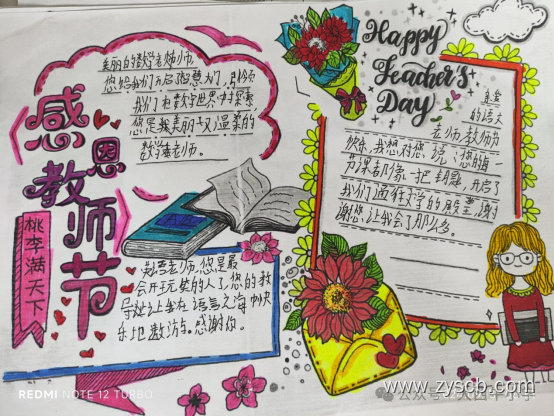 感恩
教师节
桃李满天下
美丽的数学老师,
您给我们开启智慧大门,引领
我们在数学世界中探索,
您是我美丽又温柔的
数学老师。
Happy
Teacher's
Day
亲爱
的语文
老师教师节
快乐,我想对您说:您的每
节课都像一把钥匙,开启了
我们通往文学的殿堂,谢
谢您,让我会了那么多。
英语老师,您是最
会开玩笑的人了,您的教
导让我在语言之海中快
乐地遨游。感谢你。
REDMI NOTE 12 TURBO
公众号
小学
www.zyscb.com